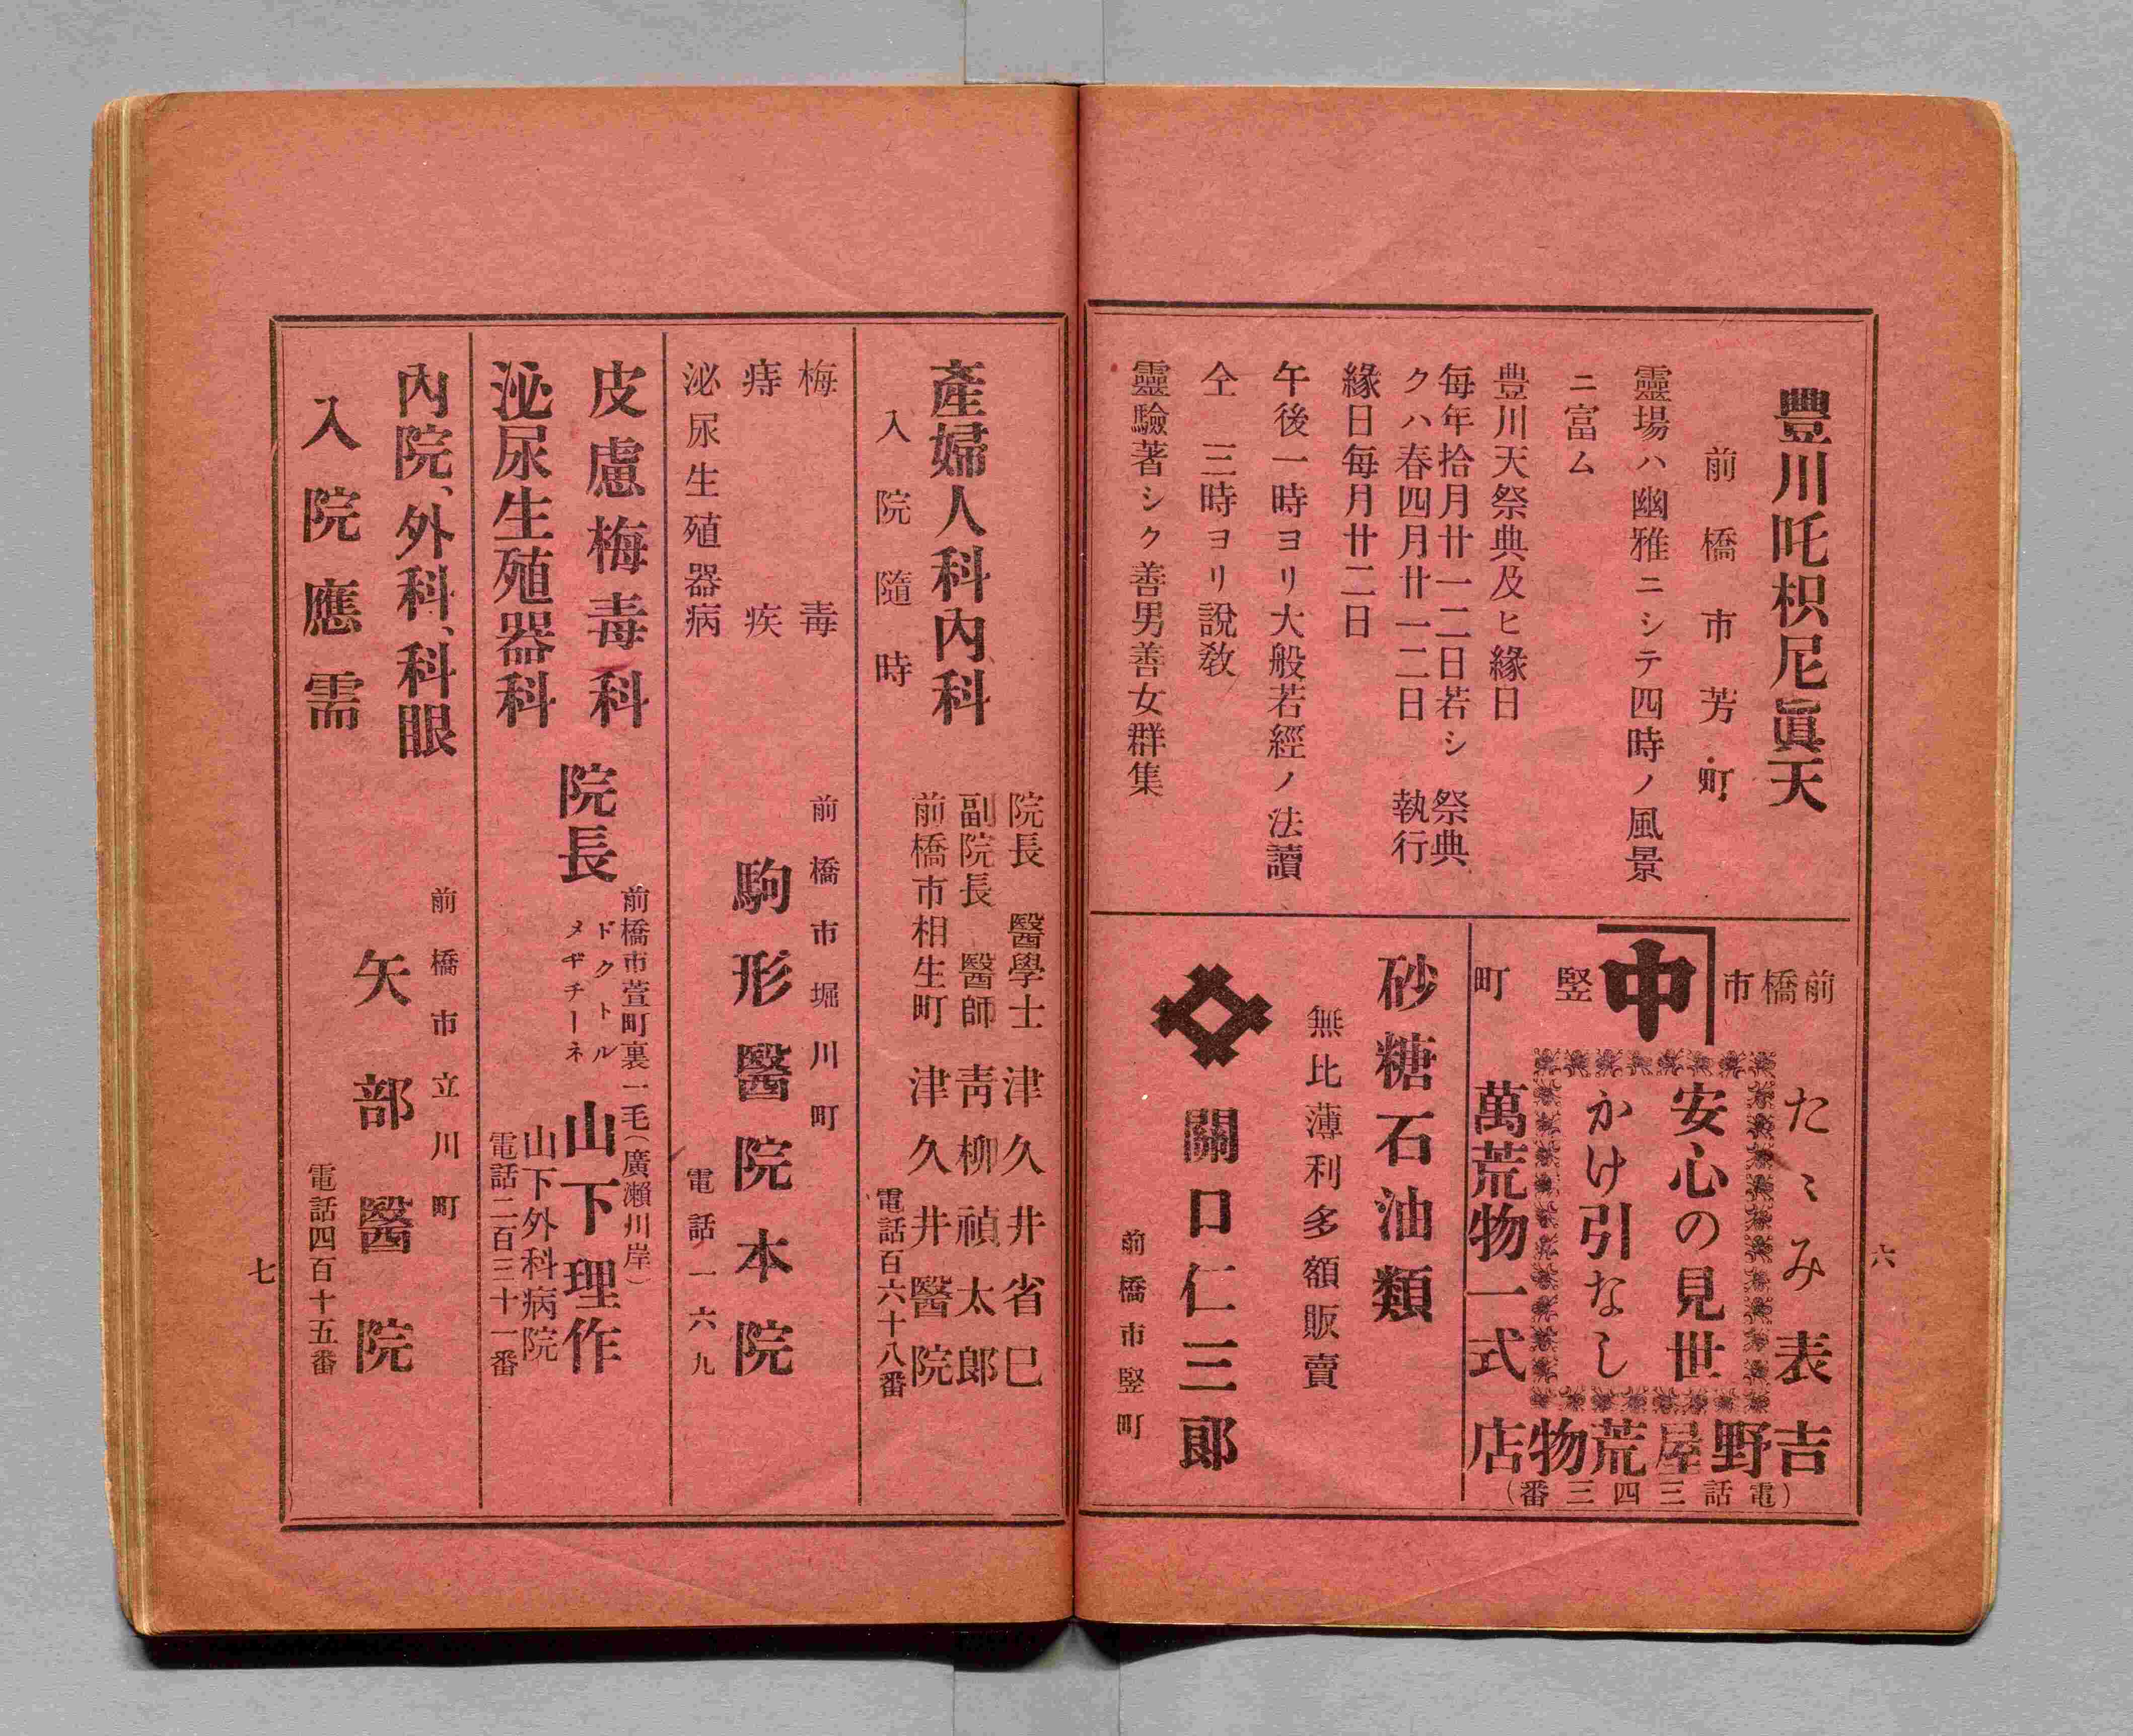 豐川吒枳尼眞天
前橋市芳町
靈場ハ幽雅ニシテ四時ノ風景
ニ富ム
豊川天祭典及ヒ緣日
每年拾月廿一二日若シ
クハ春四月廿一二日
祭典
執行
緣日每月廿二日
午後一時ヨリ大般若經ノ法讀
仝　三時ヨリ說敎
靈驗著シク善男善女群集
前橋市
中
竪町
たゝみ表
安心の見世
かけ引なし
萬荒物一式
吉野屋荒物店
(電話三四三番)
砂糖石油類
無比薄利多額販賣
關口仁三郞
前橋市竪町
六
產婦人科內科
入院隨時
院長　醫學士　津久井省巳
副院長　醫師　靑柳禎太郎
前橋市相生町　津久井醫院
電話百六十八番
梅毒
痔疾
泌尿生殖器病
前橋市堀川町
駒形醫院本院
電話一六九
皮慮梅毒科
泌尿生殖器科
前橋市萱町裏一毛(廣瀨川岸)
院長
ドクトル
メヂチーネ
山下理作
山下外科病院
電話二百三十一番
內院、外科、科眼
入院應需
前橋市立川町
矢部醫院
電話四百十五番
七